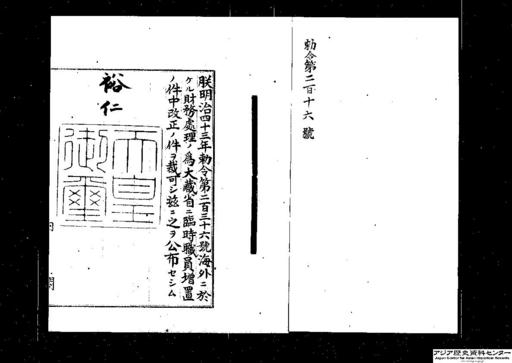 勅令第二百十六號
朕明治四十三年勅令第二百三十六號海外ニ於
ケル財務處理ノ爲大藏省ニ臨時職員増置
ノ件中改正ノ件ヲ裁可シ玆ニ之ヲ公布セシム
裕仁
天皇
御璽
内閣
アジア歴史資料センター
Japan Center for Asian Historical Records